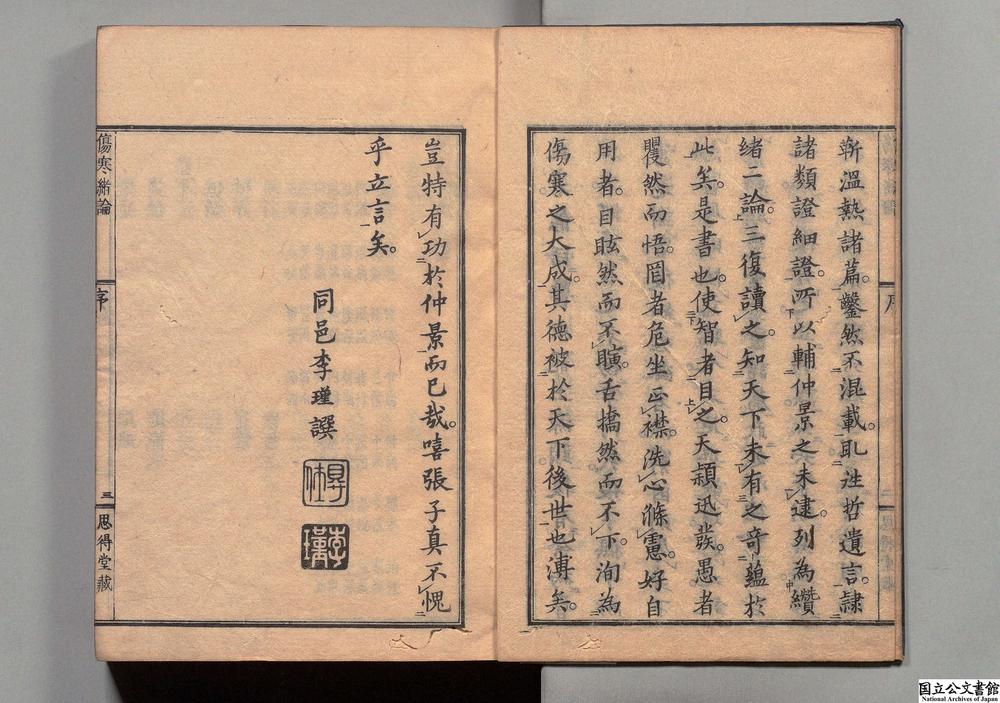 斬溫熱諸篇鑿然不混載耴徃哲遺言隷
諸類證細證所以輔仲景之未逮列為纘
緒二論三復讀之知天下未有之奇蘊於
此矣是書也使智者目之天頴迅發愚者
矍然而悟罔者危坐正襟洗心滌慮好自
用者目眩然而不瞋舌撟然而不下洵為
傷寒之大成其德被於天下後世也溥矣
豈特有功於仲景而已哉嘻張子真不愧
乎立言矣
同邑李瑾譔
李瑾
傷寒緒論
序
三
思得堂藏
国立公文書館
National Archives of Japan